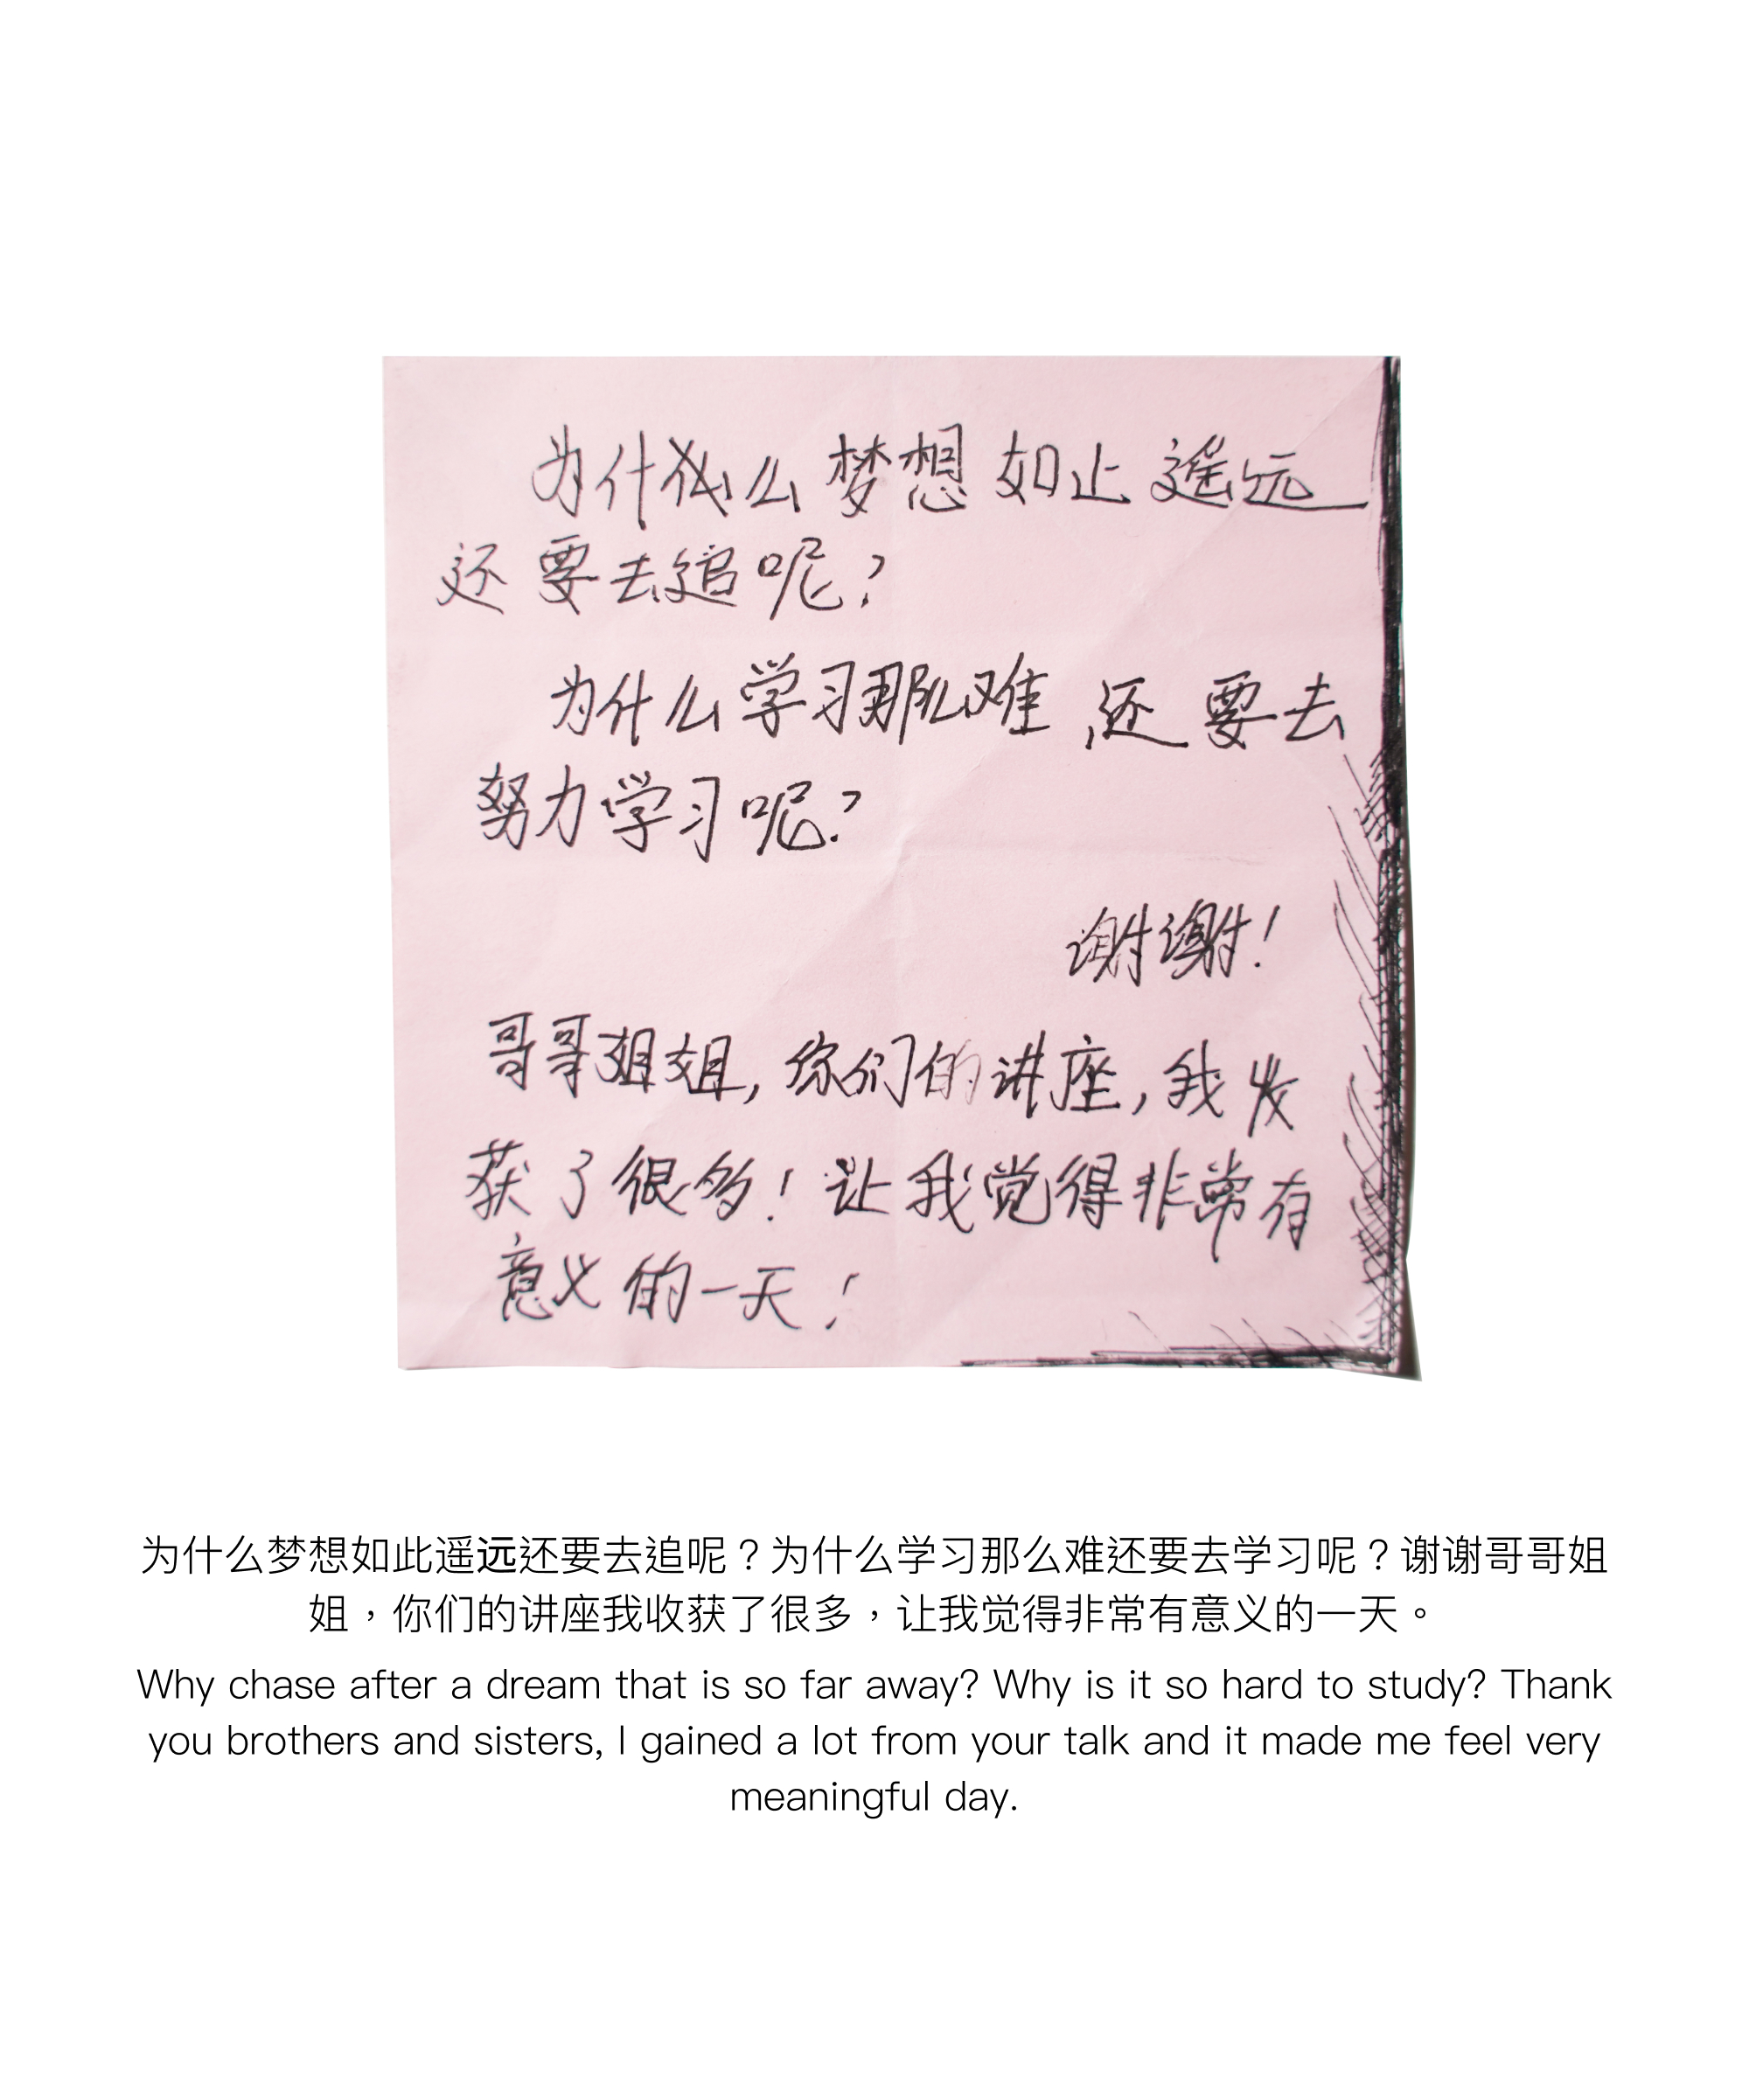 为什么梦想如止遥远
还要去追呢?
为什么学习那么难,还要去
努力学习呢?
谢谢!
哥哥姐姐,你们的讲座,我收
获了很多!让我觉得非常有
意义的一天!
为什么梦想如此遥远还要去追呢？为什么学习那么难还要去学习呢？谢谢哥哥姐
姐，你们的讲座我收获了很多，让我觉得非常有意义的一天。
Why chase after a dream that is so far away? Why is it so hard to study? Thank
you brothers and sisters, I gained a lot from your talk and it made me feel very
meaningful day.